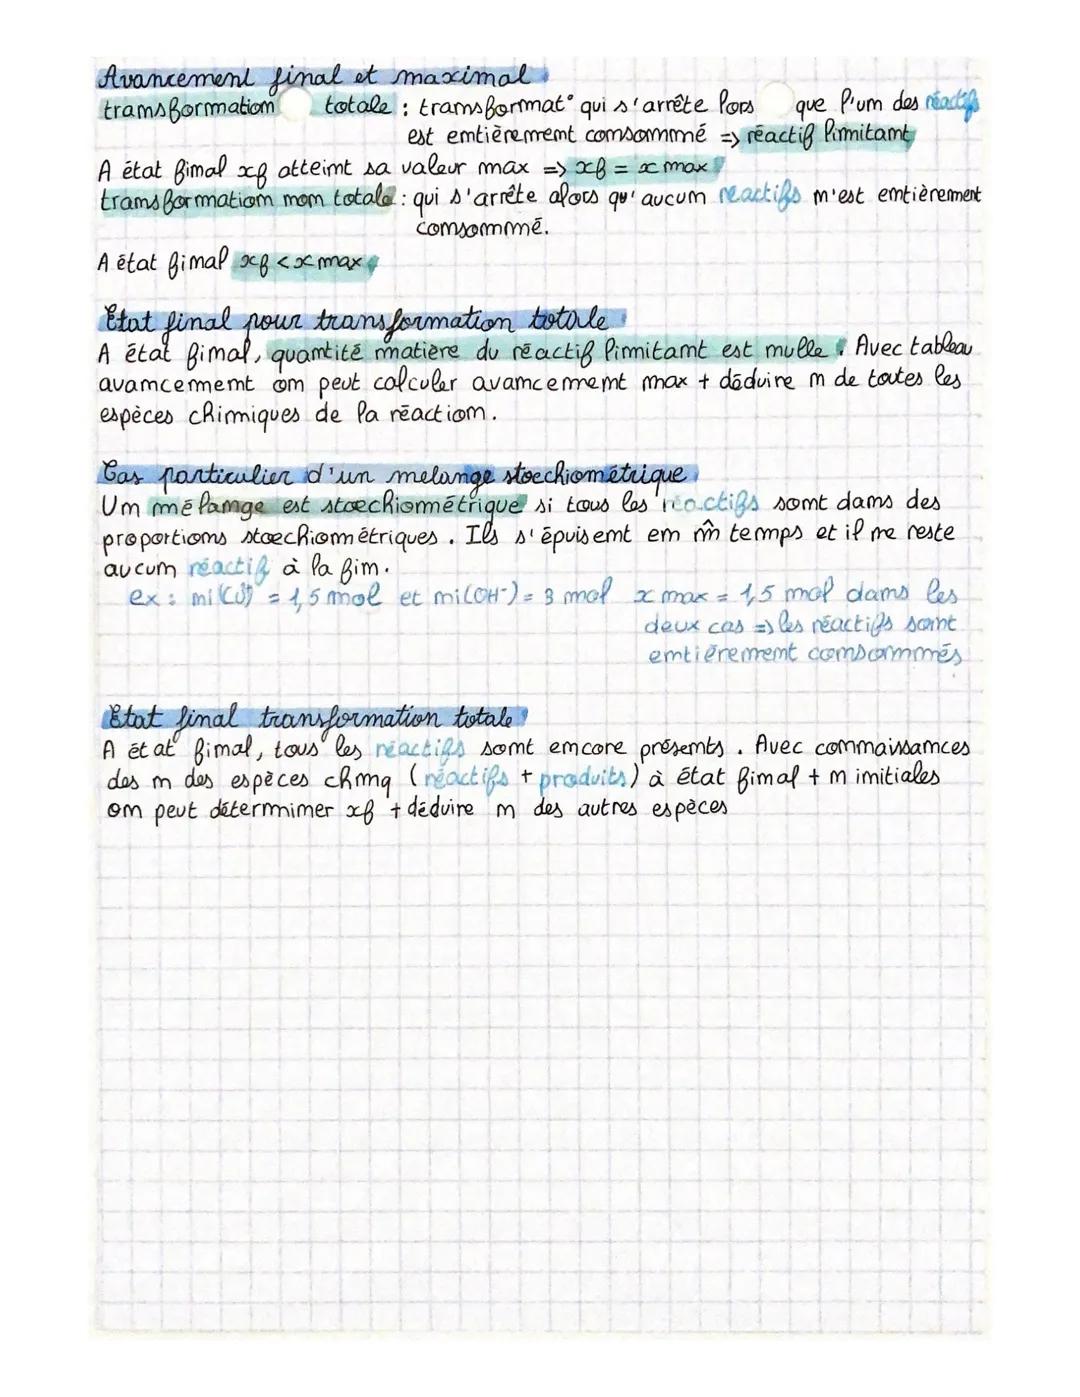 Avancement final et maximal
transformation totale : transformat° qui s'arrête lors que l'un des réactifs
est entièrement consommé => réactif limitant
A état final xf atteint sa valeur max => xf = x max
transformation non totale : qui s'arrête alors qu'aucun réactifs n'est entièrement
consommé.
A état final xf < x max
Etat final pour transformation totale
A état final, quantité matière du réactif limitant est nulle. Avec tableau
avancement on peut calculer avancement max + déduire n de toutes les
espèces chimiques de la réaction.
Cas particulier d'un melange stoechiométrique
Un mélange est stoechiométrique si tous les réactifs sont dans des
proportions stoechiométriques. Ils s'épuisent en m̂ temps et il ne reste
aucun réactif à la fin.
ex : ni = 1,5 mol et ni(OH-) = 3 mol x max = 1,5 mol dans les
deux cas => les réactifs sont
entièrement consommés
Etat final transformation totale
A état final, tous les réactifs sont encore présents. Avec connaissances
des n des espèces chmq (réactifs + produits) à état final + n initiales
on peut déterminer xf + déduire n des autres espèces